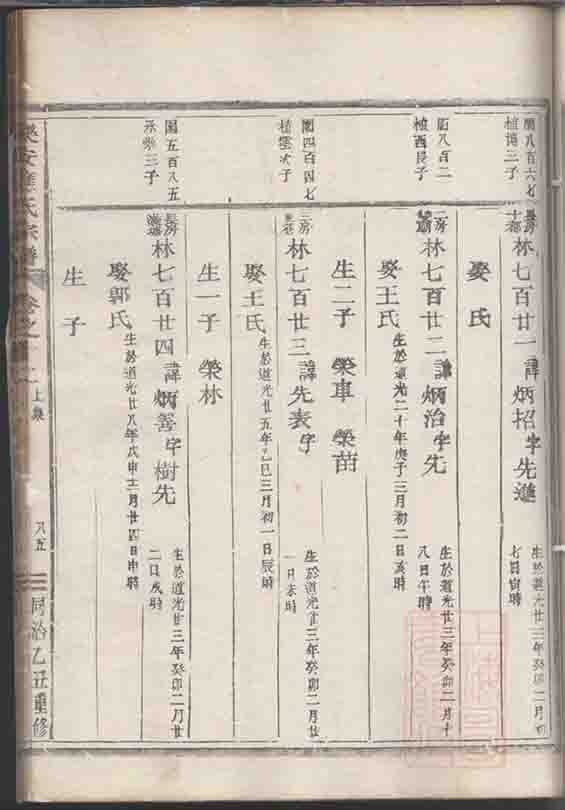 蘭八百六七
植鴻三子
長房
林七百廿一諱炳招字先進
生於道光廿三年癸卯二月初
七日寅時
娶 氏
蘭八百二
植酉長子
二房
林七百廿二諱炳治字先
生於道光廿三年癸卯二月十
八日午時
娶王氏生於道光二十年庚子三月初二日亥時
生二子 榮車 榮苗
蘭四百四七
植雲次子
三房
林七百廿三諱先表字
生於道光廿三年癸卯二月廿
一日未時
娶王氏生於道光廿五年乙巳三月初一日辰時
生一子 榮林
蘭五百八五
三子
長房
林七百廿四諱炳善字樹先
生於道光廿三年癸卯二月廿
二日戌時
娶郭氏生於道光廿八年戊申十二月廿四日申時
生 子
氏宗譜 卷之
上
八五
同治乙丑重修